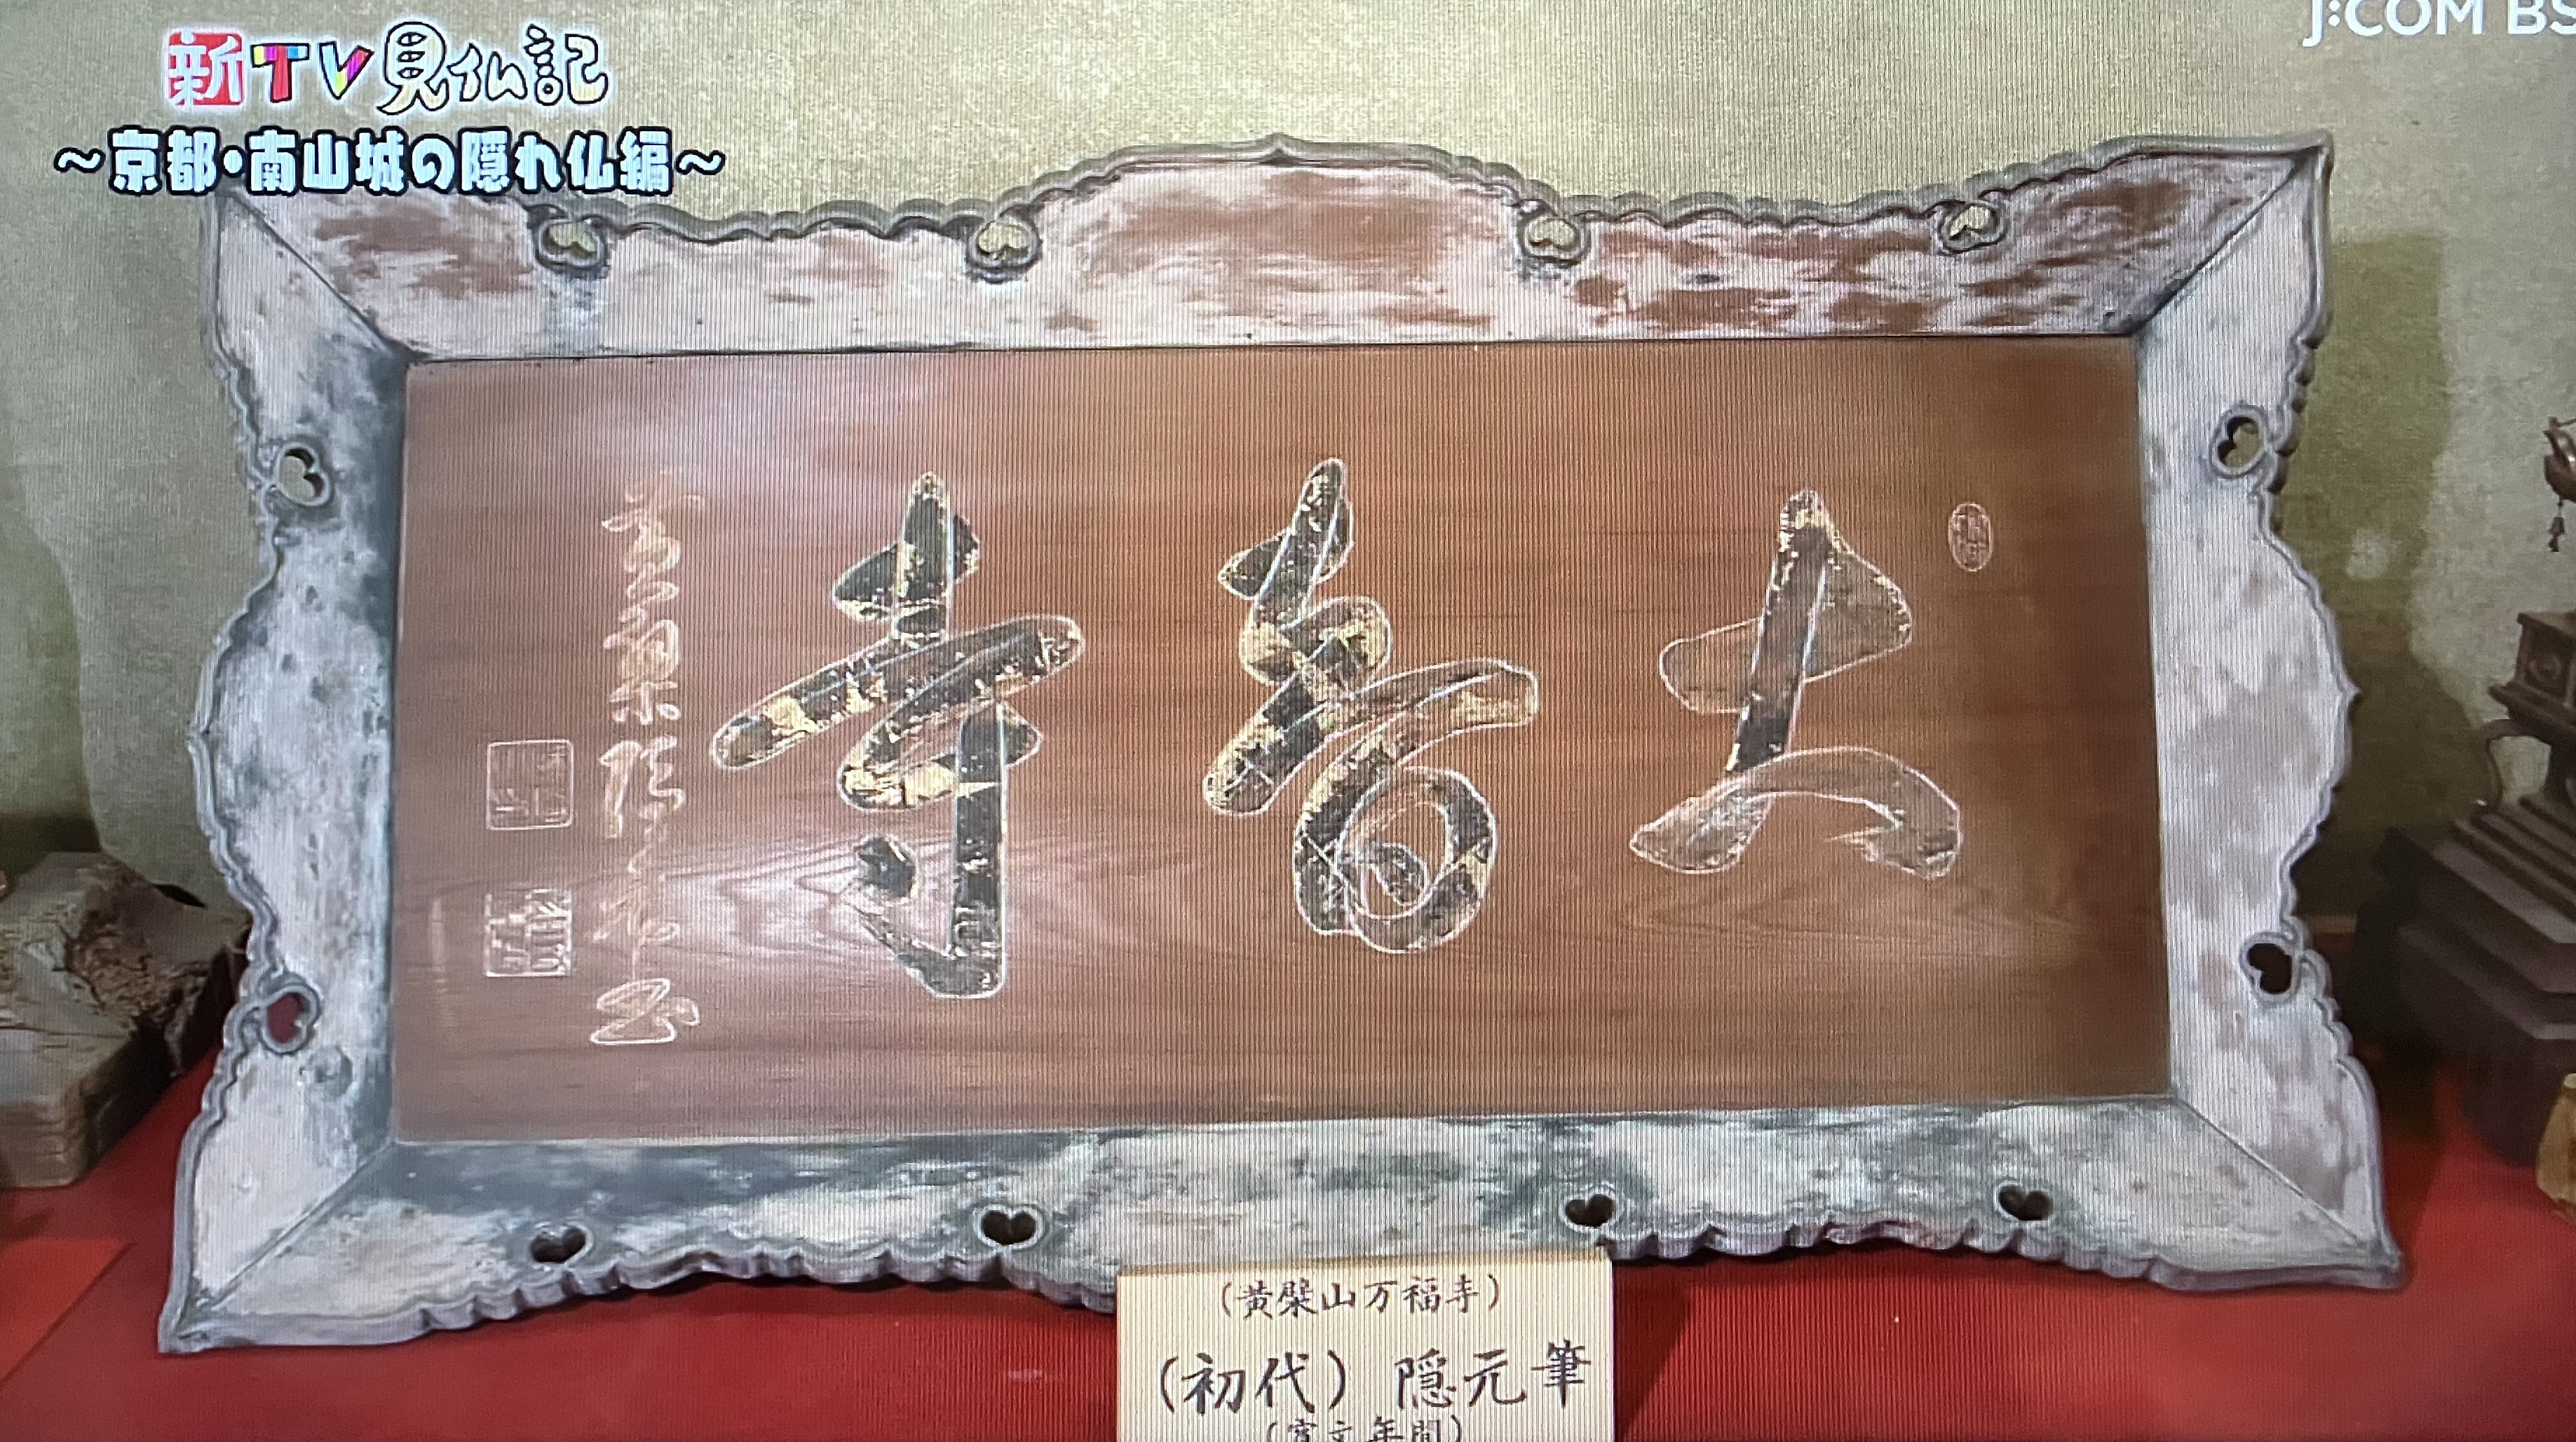 新TV見仏記
～京都・南山城の隠れ仏編～
J:COM BS
大智寺
黄檗隠元書
(黄檗山万福寺)
(初代) 隠元筆
(寛文年間)